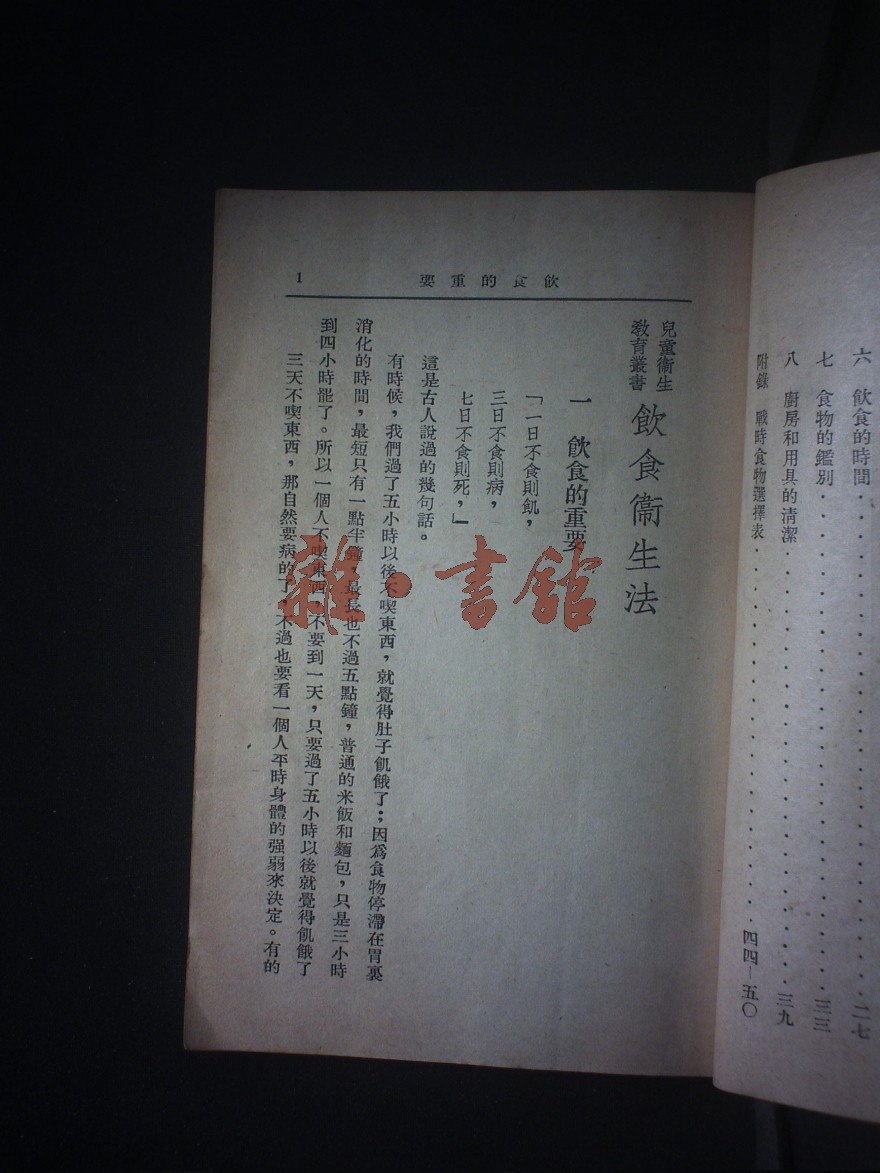 六　飲食的時間·······························二七
七　食物的鑑別·······························三三
八　廚房和用具的清潔·························三九
附錄　戰時食物選擇表·························四四—五〇
飲食的重要
1
兒童衞生
教育叢書
飲食衞生法
一　飲食的重要
「一日不食則飢，
三日不食則病，
七日不食則死，」
這是古人說過的幾句話。
有時候，我們過了五小時以後不喫東西，就覺得肚子飢餓了；因爲食物停滯在胃裏
消化的時間，最短只有一點半鐘，最長也不過五點鐘，普通的米飯和麵包，只是三小時
到四小時罷了。所以一個人不喫東西，不要到一天，只要過了五小時以後就覺得飢餓了
三天不喫東西，那自然要病的了，不過也要看一個人平時身體的强弱來決定。有的
雜·書館